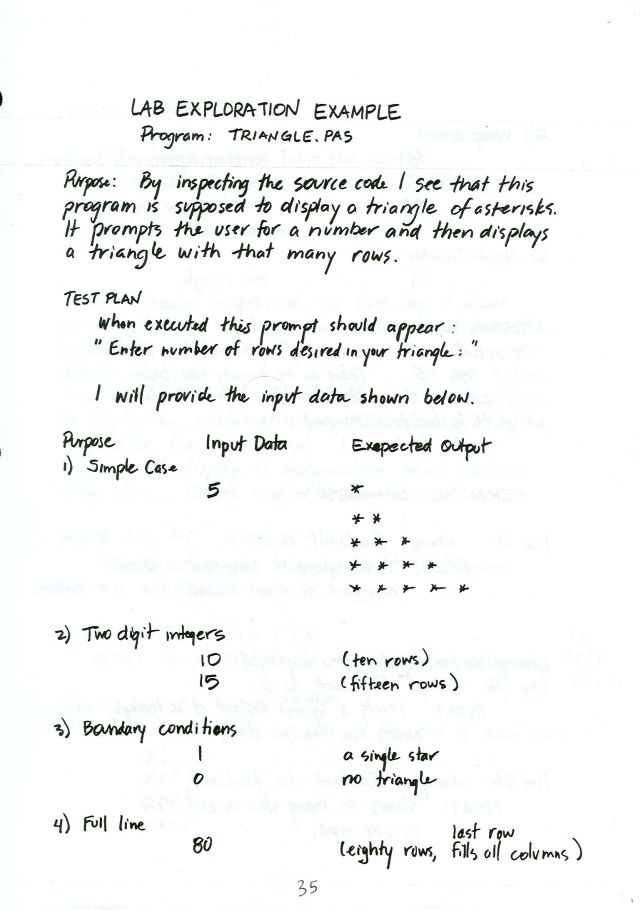 LAB EXPLORATION EXAMPLE
Program: TRIANGLE.PAS
Purpose: By inspecting the source code I see that this
program is supposed to display a triangle of asterisks.
It prompts the user for a number and then displays
a triangle with that many rows.
TEST PLAN
When executed this prompt should appear:
"Enter number of rows desired in your triangle: "
I will provide the input data shown below.
Purpose Input Data Expected Output
1) Simple Case
5 *
* *
* * *
* * * *
* * * * *
2) Two digit integers
10 (ten rows)
15 (fifteen rows)
3) Boundary conditions
1 a single star
0 no triangle
4) Full line last row
80 (eighty rows, fills all columns)
35